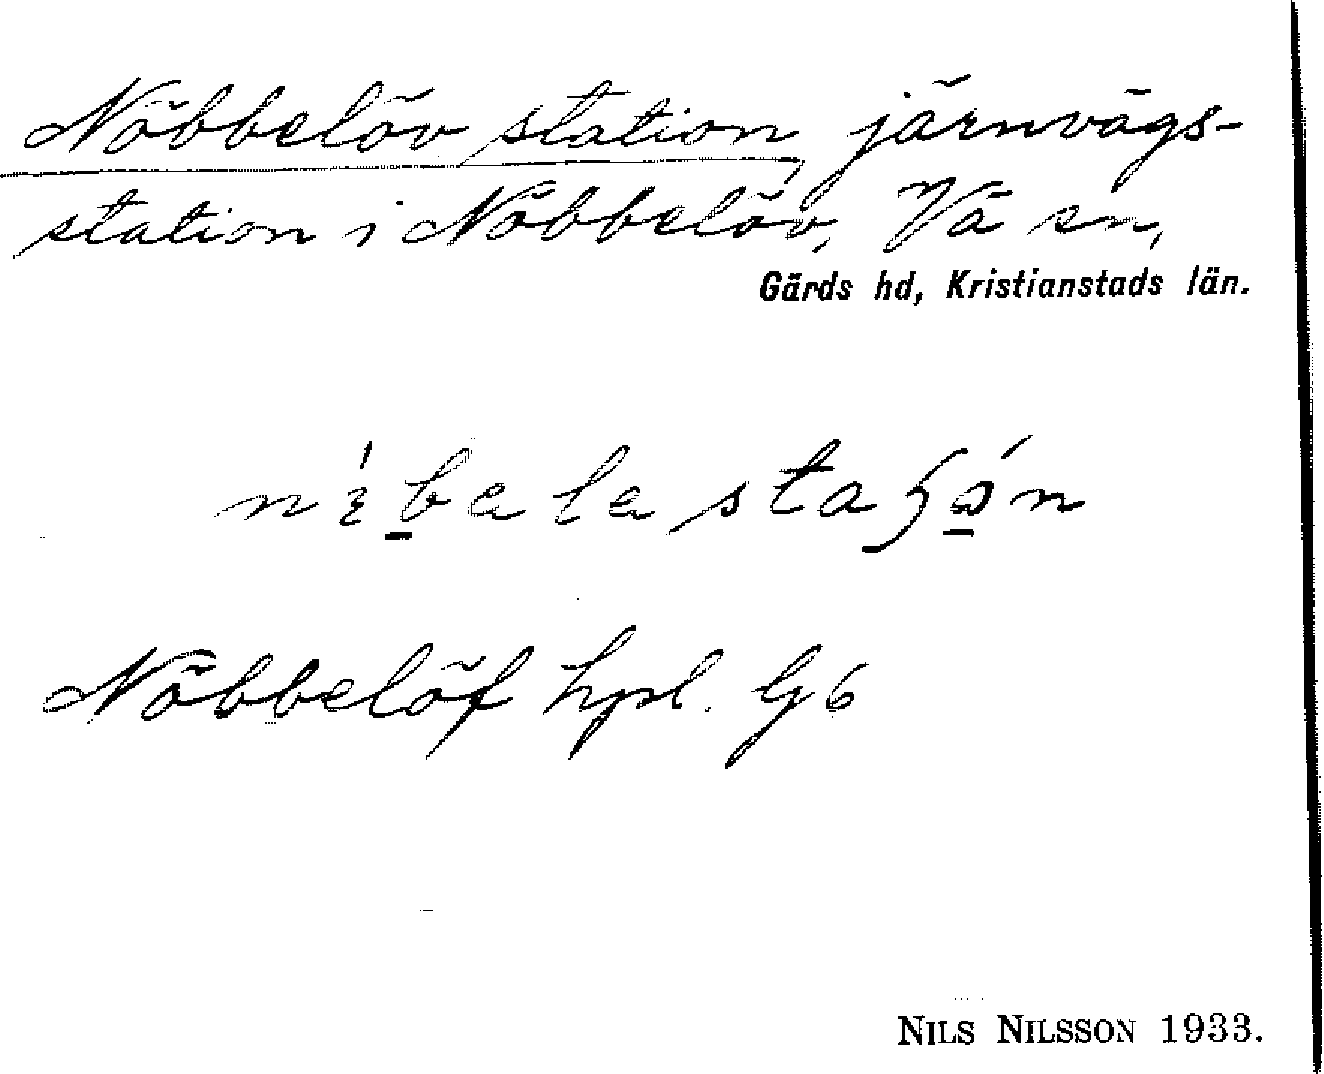 Nöbbelöv station, järnvägs-
station i Nöbbelöv, Vä sn,
Gärds hd, Kristianstads län.
Nöbbelöf hpl. G6
NILS NILSSON 1933.